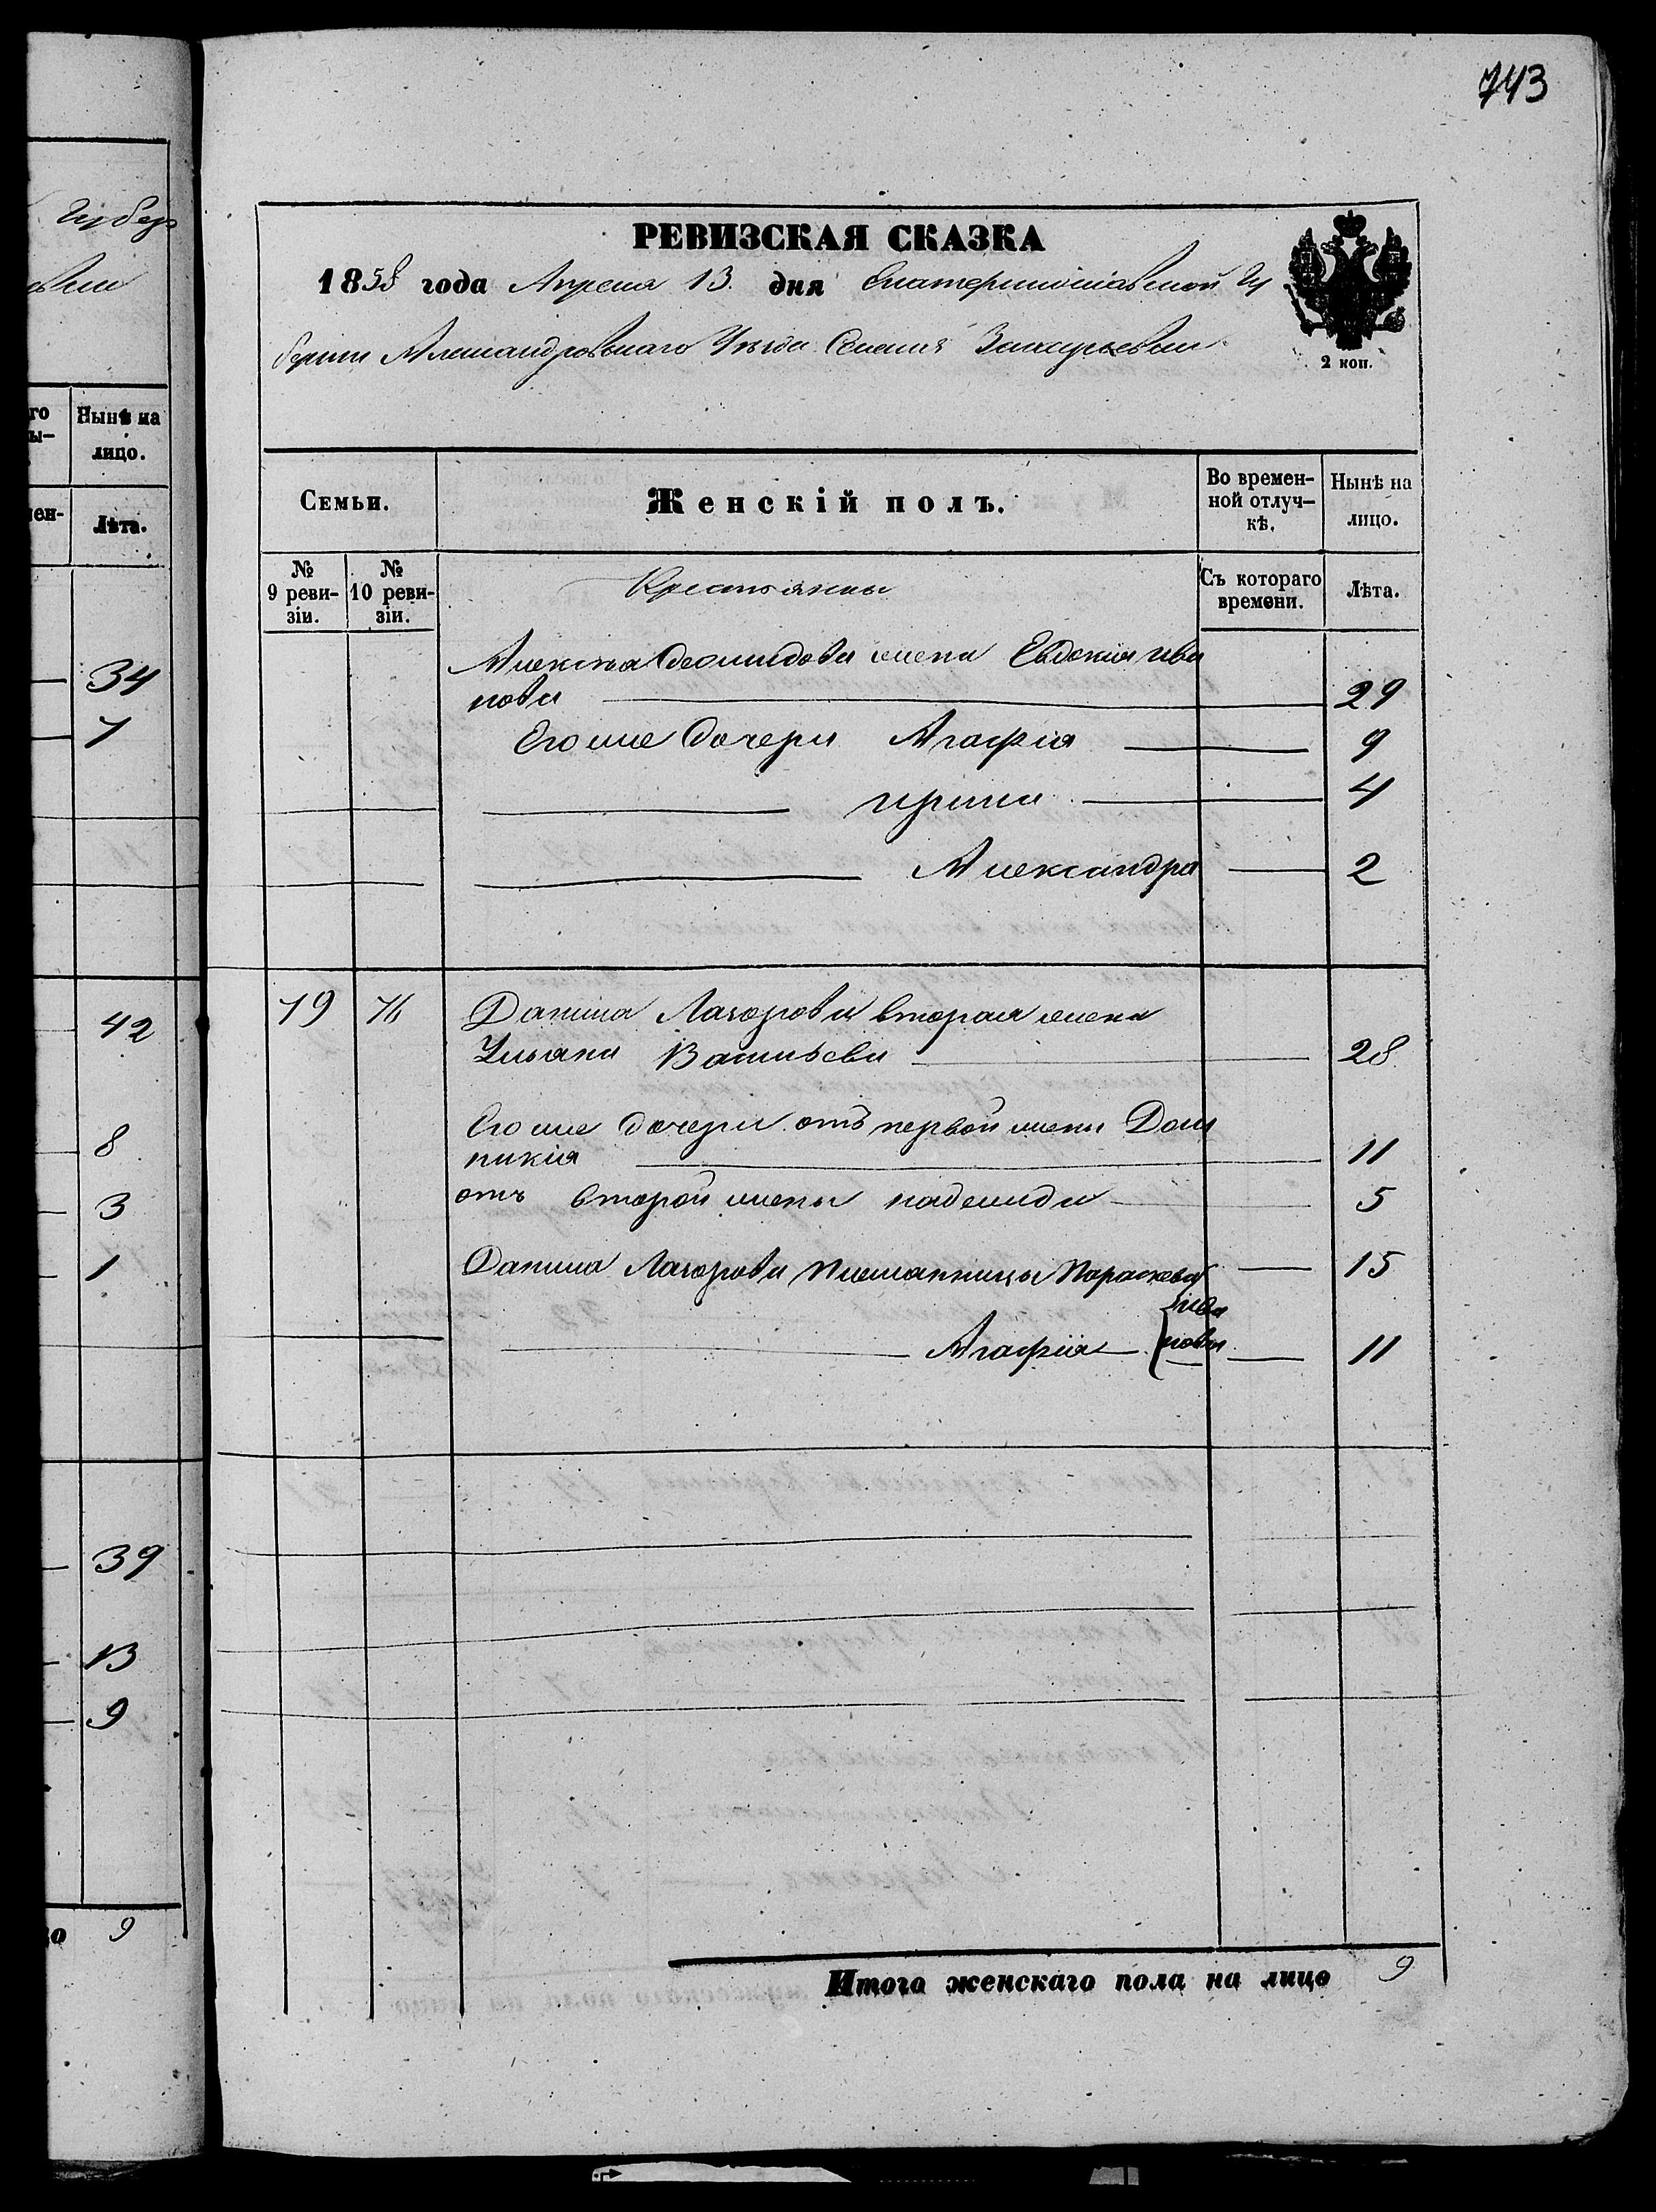 743
Губер
РЕВИЗСКАЯ СКАЗКА
1858 года Апреля 13 дня Екатеринославской Гу
берніи Александровскаго Уезда Селенія
2 коп.
го Нынѣ на
ы- лицо.
мен- Лѣта.
Семьи.
Женскій полъ.
Во времен-
ной отлуч-
кѣ.
Нынѣ на
лицо.
№
9 реви-
зіи.
№
10 реви-
зіи.
Съ котораго
времени.
Лѣта.
Крестьянки
Алексѣя жена Евдокия ива
нова 29
Его же дочери Агафія 9
ирина 4
Александра 2
19 76 Данила Лазорова вторая жена
Ульяна Васильева 28
Его же дочери отъ первой жены Дом
никія 11
отъ второй жены надежда 5
Данила Лазорова племянницы Параскева 15
ива
Агафія нова 11
Итого женскаго пола на лицо 9
34
7
42
8
3
1
39
13
9
го 9